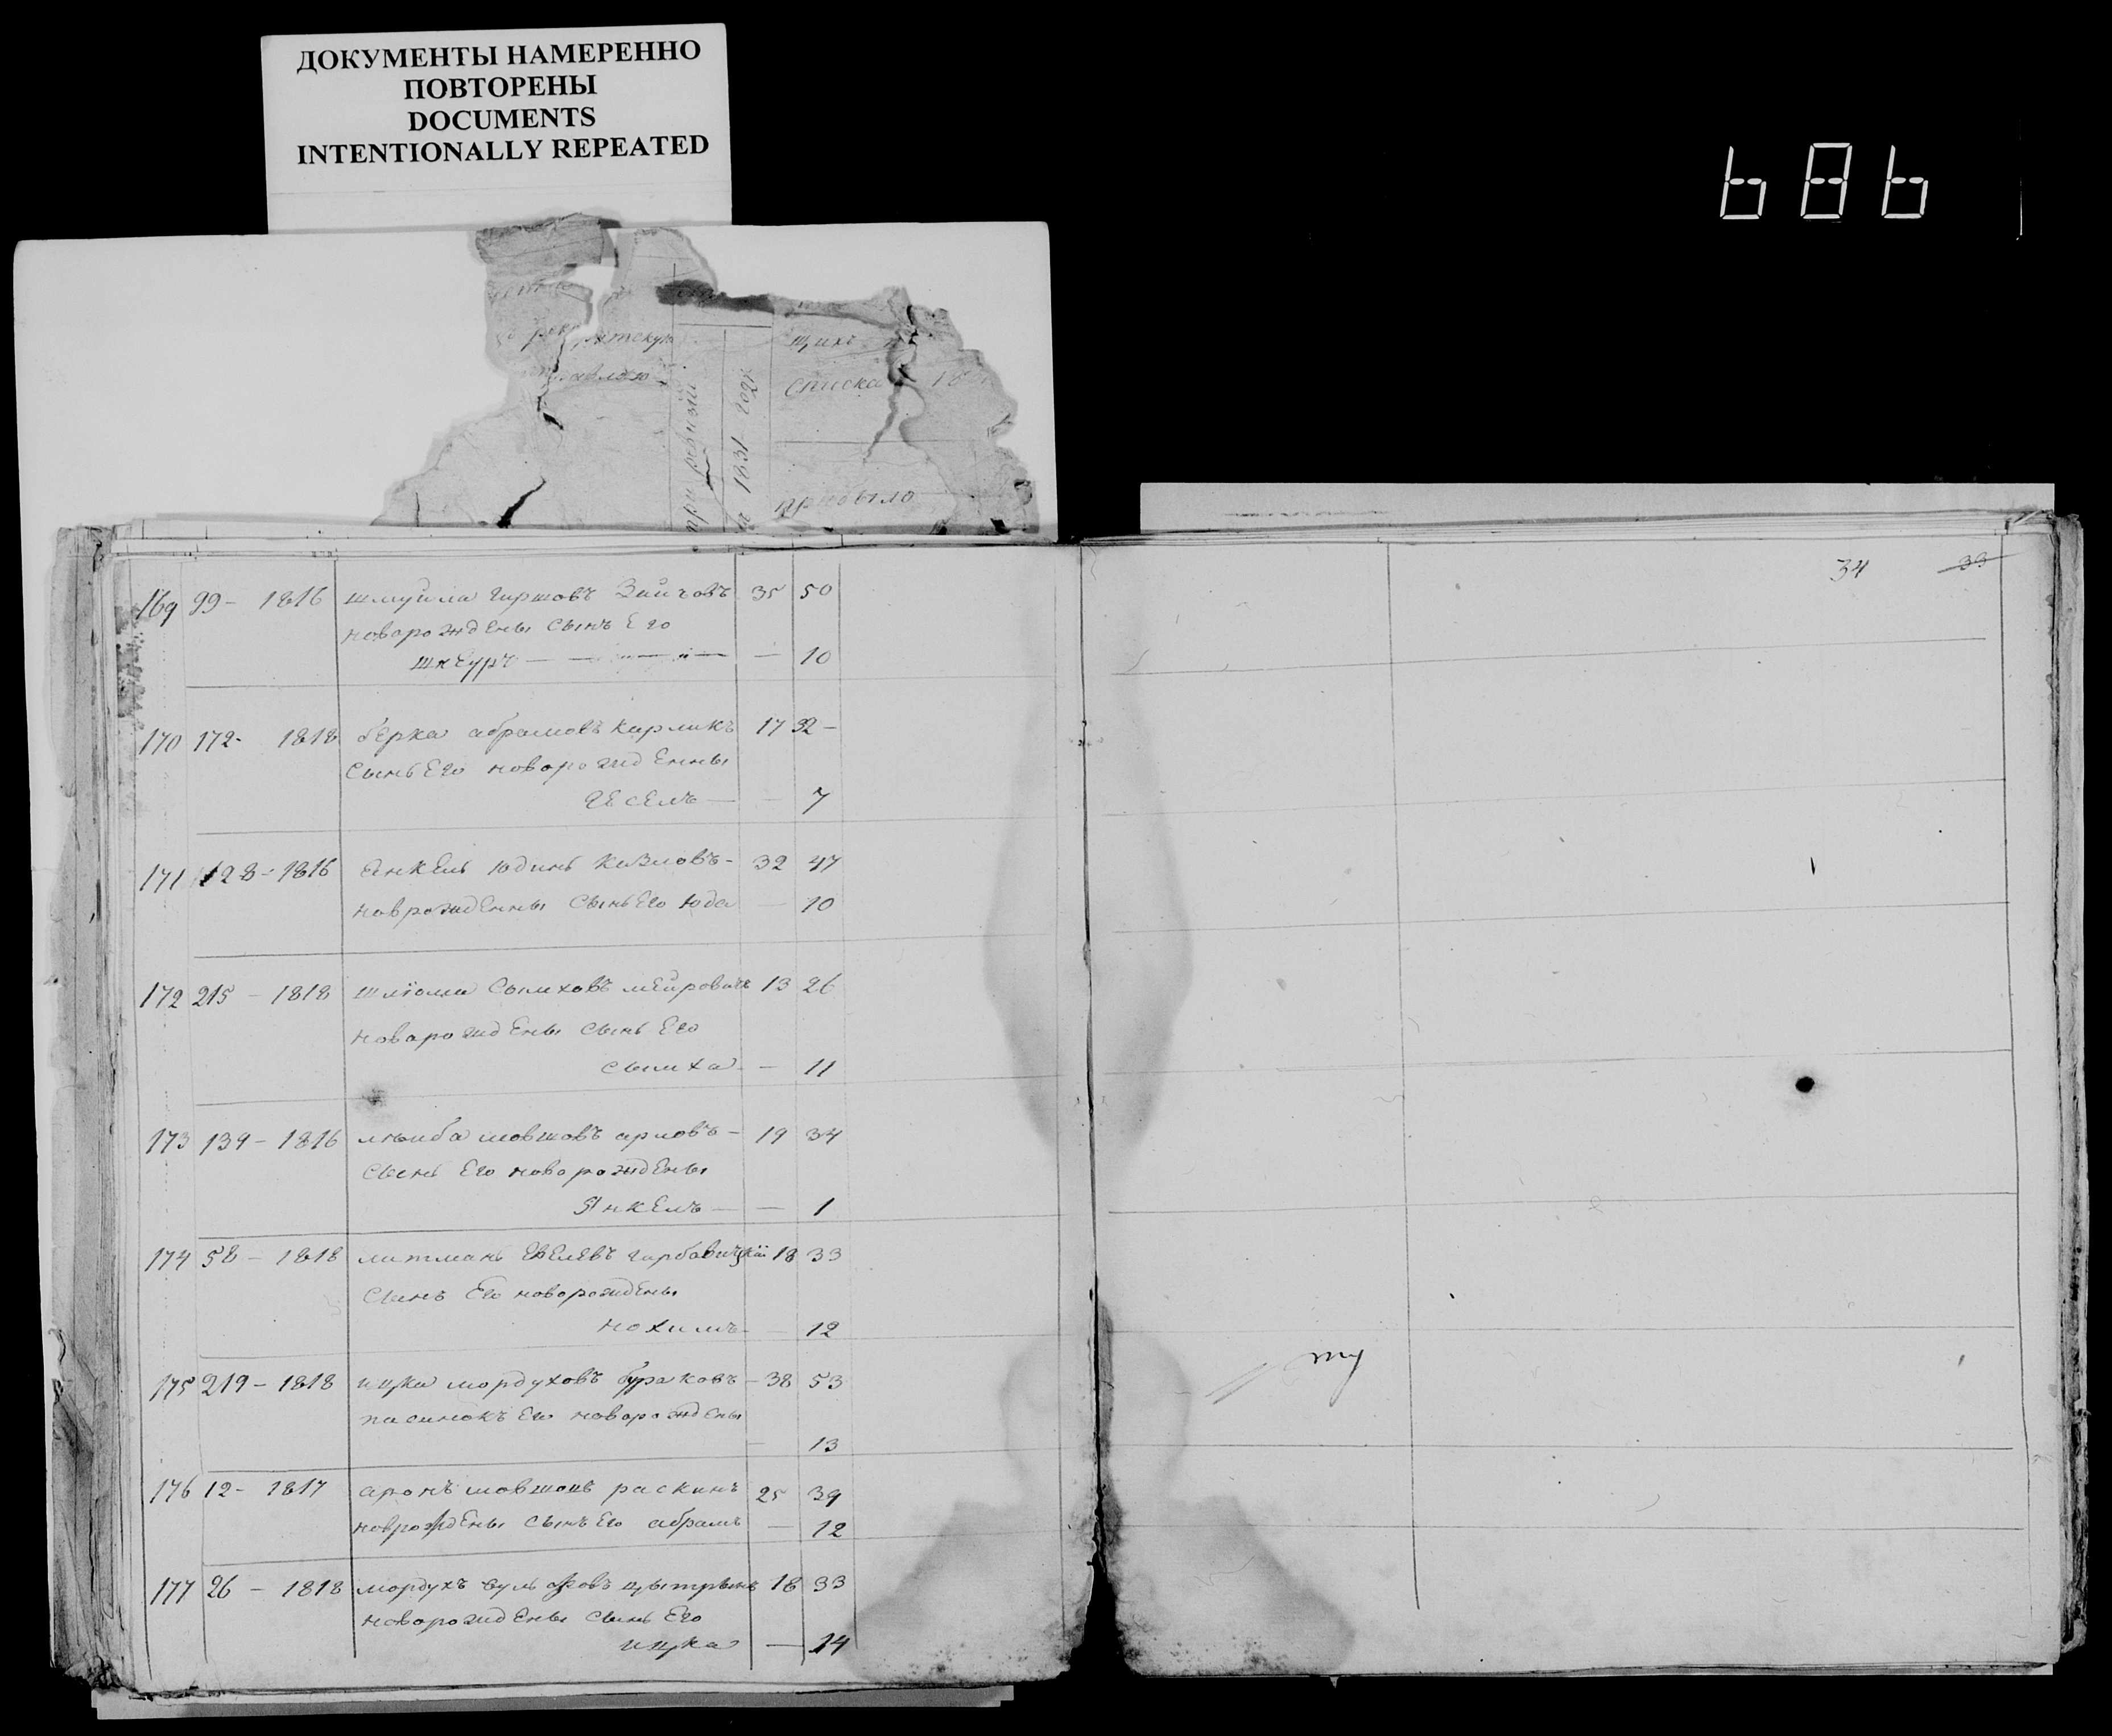 ДОКУМЕНТЫ НАМЕРЕННО
ПОВТОРЕНЫ
DOCUMENTS
INTENTIONALLY REPEATED
686
списка
прибыло
при ревизии
1831 года
34 33
169 99 - 1816 шмуйла гиршовъ Зайчовъ 35 50
новарождены сынъ Его
шнеуръ — — 10
170 172 - 1818 берка абрамовъ карликъ 17 32 -
сынъ Его новорожденны
гЕсЕлъ — — 7
171 128 - 1816 Янкель юдинъ козловъ - 32 47
коврожденны сынъ Его юда — 10
172 215 - 1818 шлюма сымховъ мейровичъ 13 26
новарождены сынъ Его
сымха — 11
173 139 - 1816 лейба мовшовъ арловъ - 19 34
сынъ Его новорождены
Янкель — — 1
174 58 - 1818 литманъ горбавицкій 18 33
сынъ Его новорождены
нохимъ — 12
175 219 - 1818 ицка мордуховъ бураковъ - 38 53
пасинокъ Его новорождены
— 13
176 12 - 1817 аронъ мовшовъ раскинъ 25 39
новрождены сынъ Его абрамъ — 12
177 26 - 1818 мордухъ вульфовъ цытринъ 18 33
новорождены сынъ Его
ицка — 14